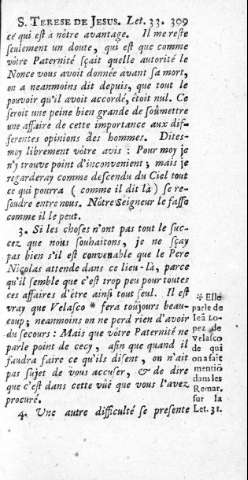 S. TERESE DE JESUS. Let. 33. 309
ce qui est à nôtre avantage. Il me reste
seulement un doute, qui est que comme
vôtre Paternité sçait quelle autorité le
Nonce vous avoit donnée avant sa mort,
on a neanmoins dit depuis, que tout le
pouvoir qu'il avoit accordé, étoit nul. Ce
seroit une peine bien grande de soûmettre
une affaire de cette importance aux dif-
ferentes opinions des hommes. Dites-
moy librement vôtre avis : Pour moy je
n'y trouve point d'inconvenient ; mais je
regarderay comme descendu du Ciel tout
ce qui pourra ( comme il dit là ) se re-
soudre entre nous. Nôtre Seigneur le fasse
comme il le peut.
3. Si les choses n'ont pas tout le suc-
cez que nous souhaitons, je ne sçay
pas bien s'il est convenable que le Pere
Nicolas attende dans ce lieu-là, parce
qu'il semble que c'est trop peu pour toutes
ces affaires d'être ainsi tout seul. Il est
vray que Velasco * fera toûjours beau-
coup ; neanmoins on ne perd rien d'avoir
du secours : Mais que vôtre Paternité ne
parle point de cecy, afin que quand il
faudra faire ce qu'ils disent, on n'ait
pas sujet de vous accuser, & de dire
que c'est dans cette vûë que vous l'avez
procuré.
4. Une autre difficulté se presente
* Elle
parle de
Lo-
pez de
Velasco
de qui
on a fait
mentiõ
dans les
Remar.
sur la
Let. 31.